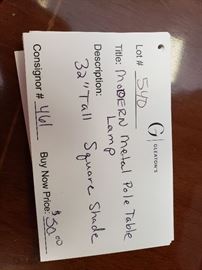 Lot# 540
G | GLEATON'S
Title: MODERN Metal Pole Table
Lamp
Description:
32" Tall Square Shade
Consignor# 461 Buy Now Price: $30.00